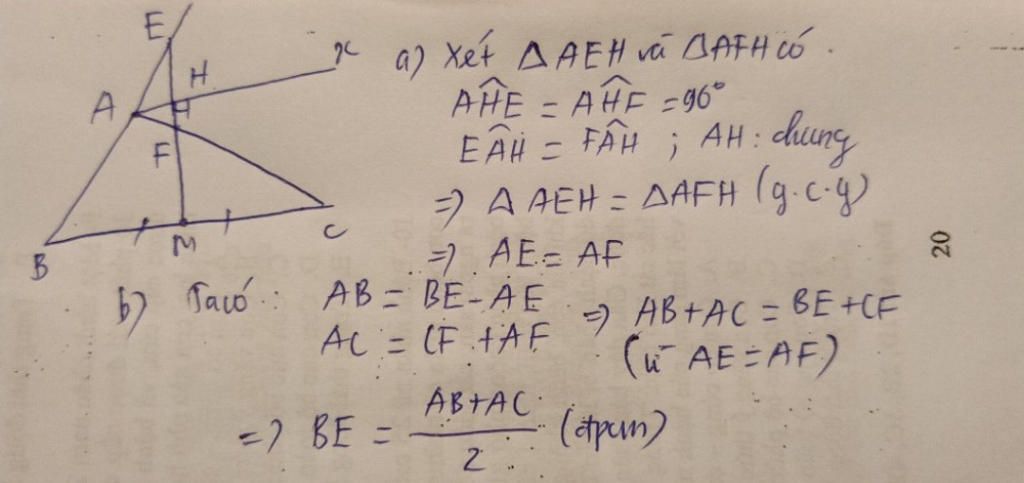 E
H
x
A
F
B
M
C
a) Xét ΔAEH và ΔAFH có.
AĤE = AĤF = 90°
EÂH = FÂH ; AH: chung
=> ΔAEH = ΔAFH (g.c.g)
=> AE = AF
b) Ta có: AB = BE - AE
AC = CF + AF
=> AB + AC = BE + CF
(vì AE = AF)
=> BE = AB + AC / 2 (đpcm)
20